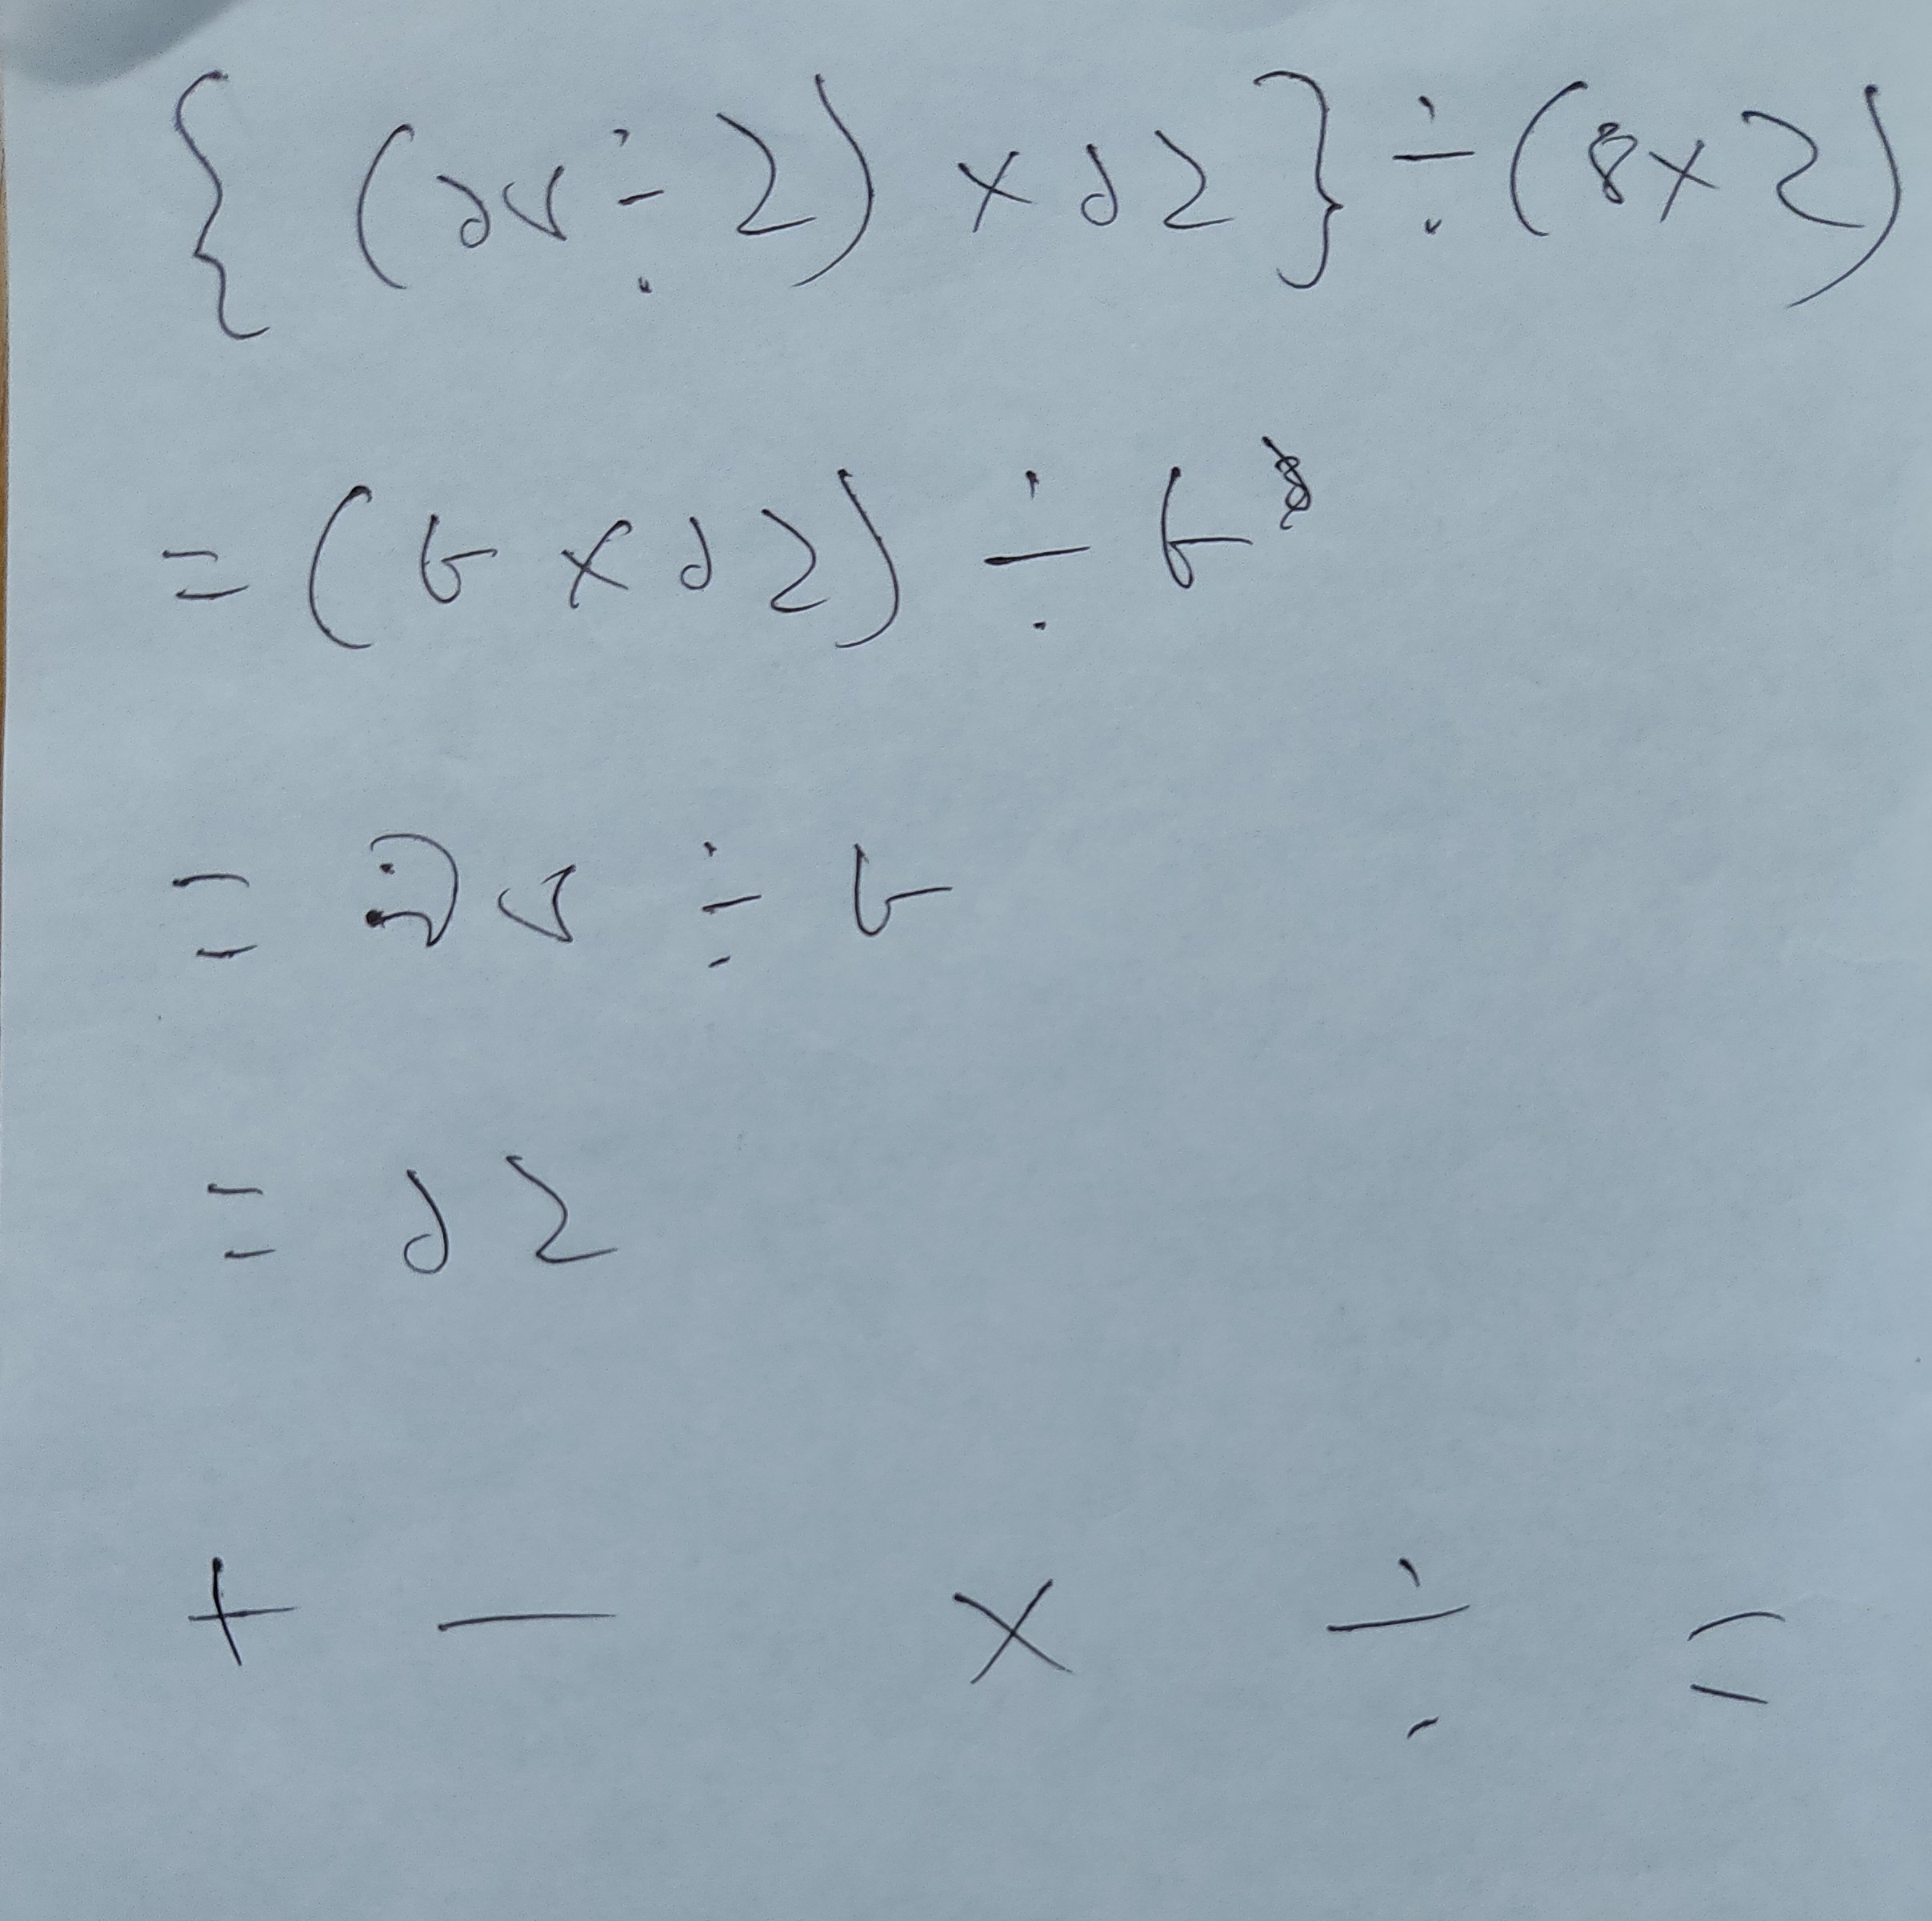 {(১৬÷২)×১২}÷(৪×২)
=(৮×১২)÷৮
=৯৬÷৮
=১২
+ − × ÷ =